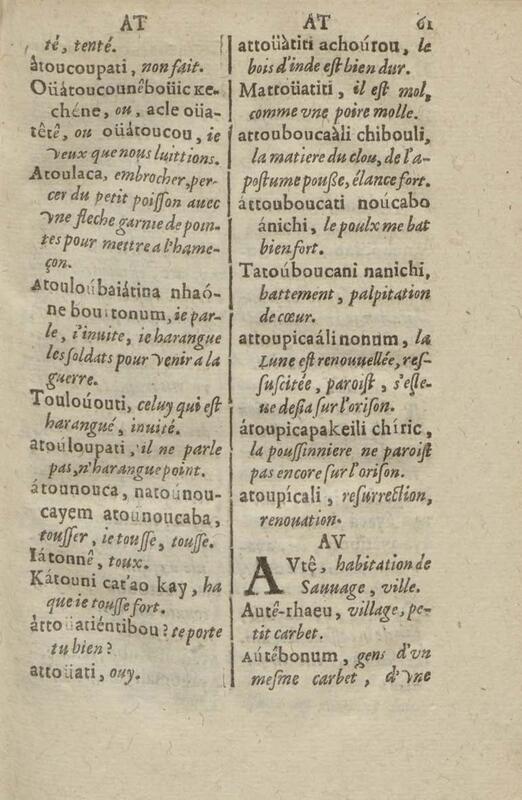 AT
AT
61
té, tenté.
àtoucoupati, non fait.
Oüátoucounêboüic ке-
chéne, ou, acle oüa-
têtê, ou oüátoucou, ie
veux que nous luittions.
Atoulaca, embrocher, per-
cer du petit poisson auec
vne fleche garnie de poin-
tes pour mettre a l'hame-
çon.
Atouloúbaiátina nhaó-
ne bouitonum, ie par-
le, i'inuite, ie harangue
les soldats pour venir a la
guerre.
Toulouóuti, celuy qui est
harangué, inuité.
atoúloupati, il ne parle
pas, n'harangue point.
átounouca, natoúnou-
cayem atoúnoucaba,
tousser, ie tousse, tousse.
Iátonnê, toux.
Kátouni cat'ao kay, ha
que ie tousse fort.
àttoüatiéntibou? te porte
tu bien?
attoüati, ouy.
attoüàtiti achoúrou, le
bois d'inde est bien dur.
Mattoüatiti, il est mol,
comme vne poire molle.
attouboucaàli chibouli,
la matiere du clou, de l'a-
postume pousse, élance fort.
áttouboucati noúcabo
ánichi, le poulx me bat
bien fort.
Tatoúboucani nanichi,
battement, palpitation
de cœur.
attoupicaáli nonum, la
Lune est renouuellée, res-
suscitée, paroist, s'esle-
ue desia sur l'orison.
átoupicapakeili chíric,
la poussinniere ne paroist
pas encore sur l'orison.
atoupícali, resurrection,
renouation.
AV
AVtê, habitation de
Sauuage, ville.
Autê-rhaeu, village, pe-
tit carbet.
Aútêbonum, gens d'vn
mesme carbet, d'vne